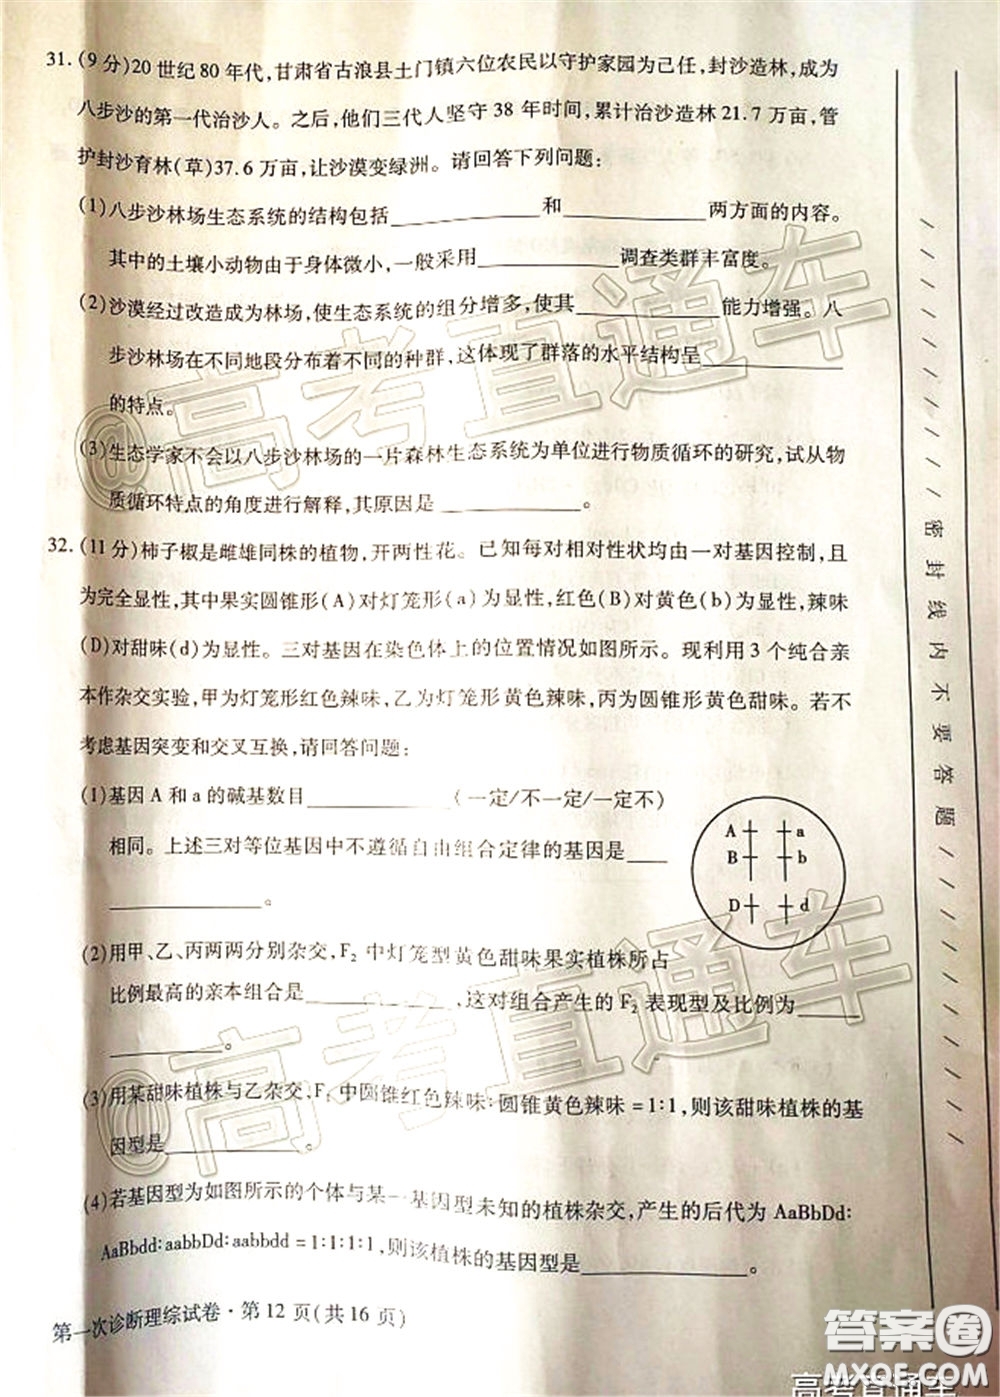 31. (9分)20世纪80年代,甘肃省古浪县土门镇六位农民以守护家园为己任,封沙造林,成为
八步沙的第一代治沙人。之后,他们三代人坚守38年时间,累计治沙造林21.7万亩,管
护封沙育林(草)37.6万亩,让沙漠变绿洲。请回答下列问题:
(1)八步沙林场生态系统的结构包括____________和____________两方面的内容。
其中的土壤小动物由于身体微小,一般采用____________调查类群丰富度。
(2)沙漠经过改造成为林场,使生态系统的组分增多,使其____________能力增强。八
步沙林场在不同地段分布着不同的种群,这体现了群落的水平结构呈____________
的特点。
(3)生态学家不会以八步沙林场的一片森林生态系统为单位进行物质循环的研究,试从物
质循环特点的角度进行解释,其原因是____________。
32. (11分)柿子椒是雌雄同株的植物,开两性花。已知每对相对性状均由一对基因控制,且
为完全显性,其中果实圆锥形(A)对灯笼形(a)为显性,红色(B)对黄色(b)为显性,辣味
(D)对甜味(d)为显性。三对基因在染色体上的位置情况如图所示。现利用3个纯合亲
本作杂交实验,甲为灯笼形红色辣味,乙为灯笼形黄色辣味,丙为圆锥形黄色甜味。若不
考虑基因突变和交叉互换,请回答问题:
(1)基因A和a的碱基数目____________(一定/不一定/一定不)
相同。上述三对等位基因中不遵循自由组合定律的基因是____
____________。
A a
B b
D d
(2)用甲、乙、丙两两分别杂交,F₂中灯笼型黄色甜味果实植株所占
比例最高的亲本组合是____________,这对组合产生的F₂表现型及比例为_____
_________。
(3)用某甜味植株与乙杂交,F₁中圆锥红色辣味:圆锥黄色辣味=1:1,则该甜味植株的基
因型是____________。
(4)若基因型为如图所示的个体与某一基因型未知的植株杂交,产生的后代为AaBbDd:
AaBbdd:aabbDd:aabbdd=1:1:1:1,则该植株的基因型是____________。
第一次诊断理综试卷·第12页(共16页)
密封线内不要答题
@高考直通车
@高考直通车
高考直通车
答案圈
MXQE.COM